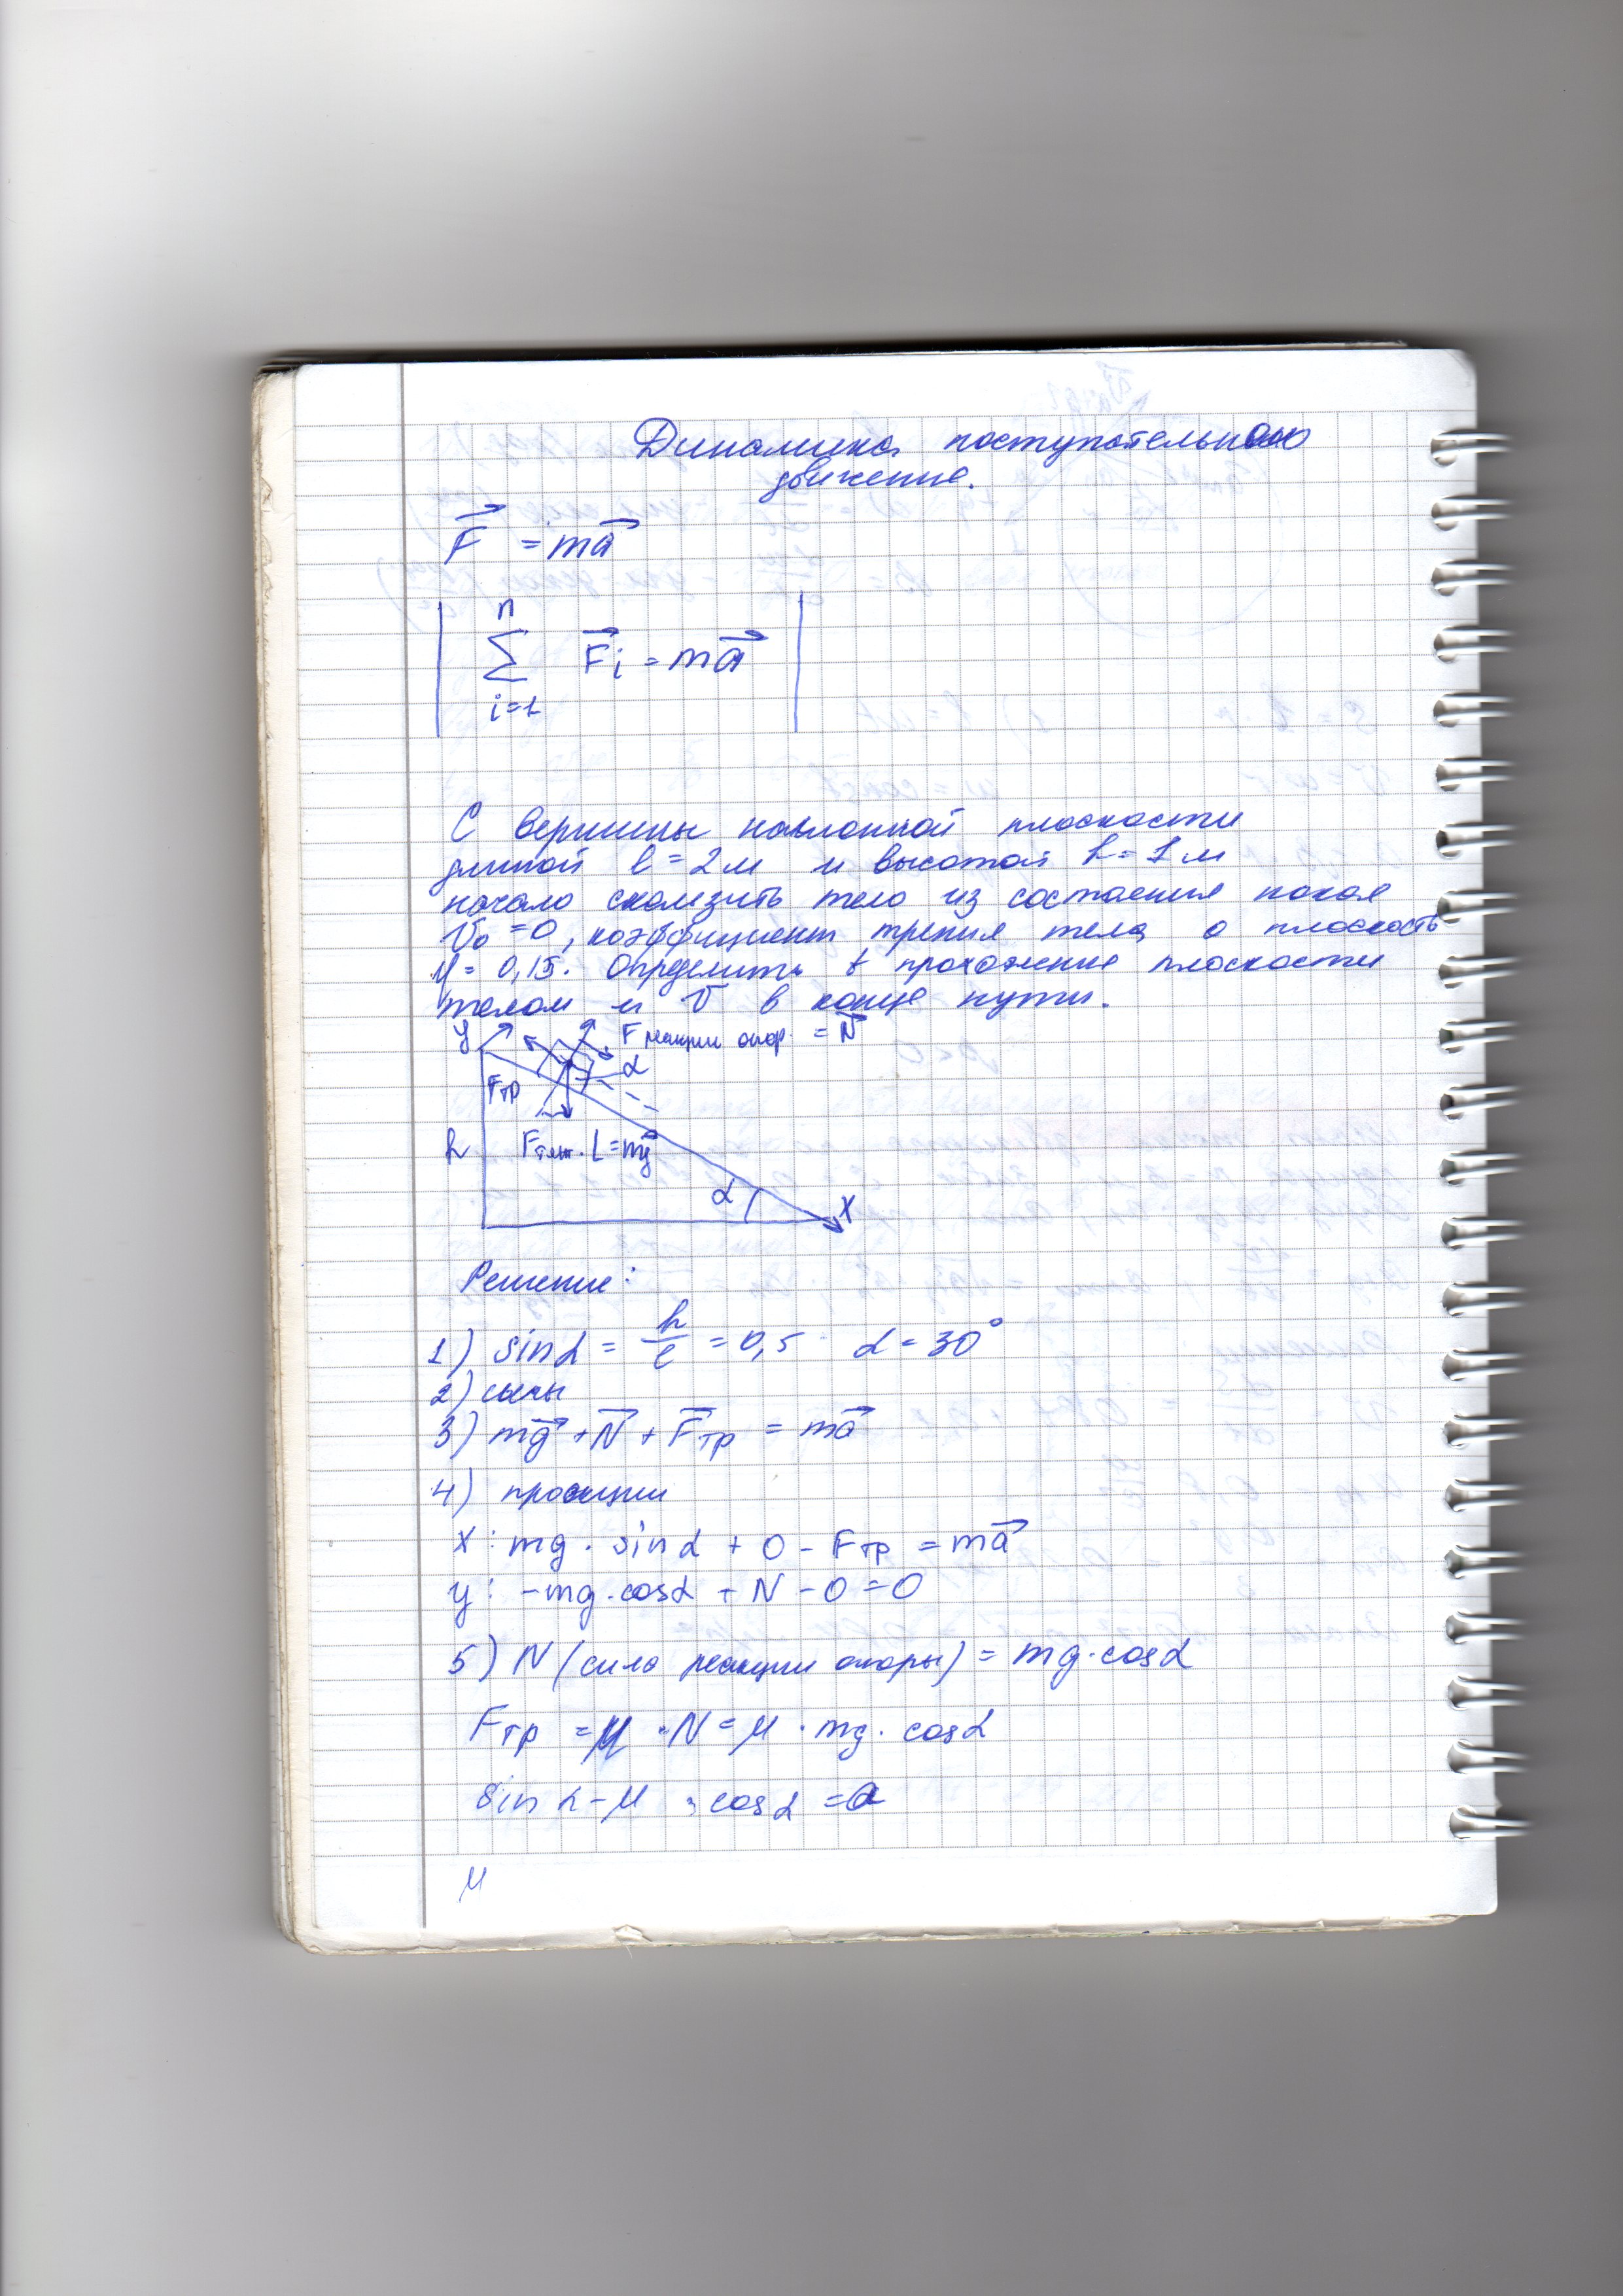 Динамика поступательного
движение.
F⃗ = ma⃗
n
∑ F⃗i = ma⃗
i=1
С вершины наклонной плоскости
длиной l = 2 м и высотой h = 1 м
начало скользить тело из состояния покоя
V₀ = 0, коэффициент трения тела о плоскость
μ = 0,15. Определить t прохожение плоскости
телом и V в конце пути.
y F реакции опор. = N⃗
Fтр α
h Fтяж. L = mg⃗
α x
Решение:
1) sin α = h/l = 0,5 α = 30°
2) силы
3) mg⃗ + N⃗ + F⃗тр = ma⃗
4) проекции
x: mg · sin α + 0 - Fтр = ma⃗
y: -mg · cos α + N - 0 = 0
5) N (сила реакции опоры) = mg · cos α
Fтр = μ · N = μ · mg · cos α
sin α - μ · cos α = a
μ